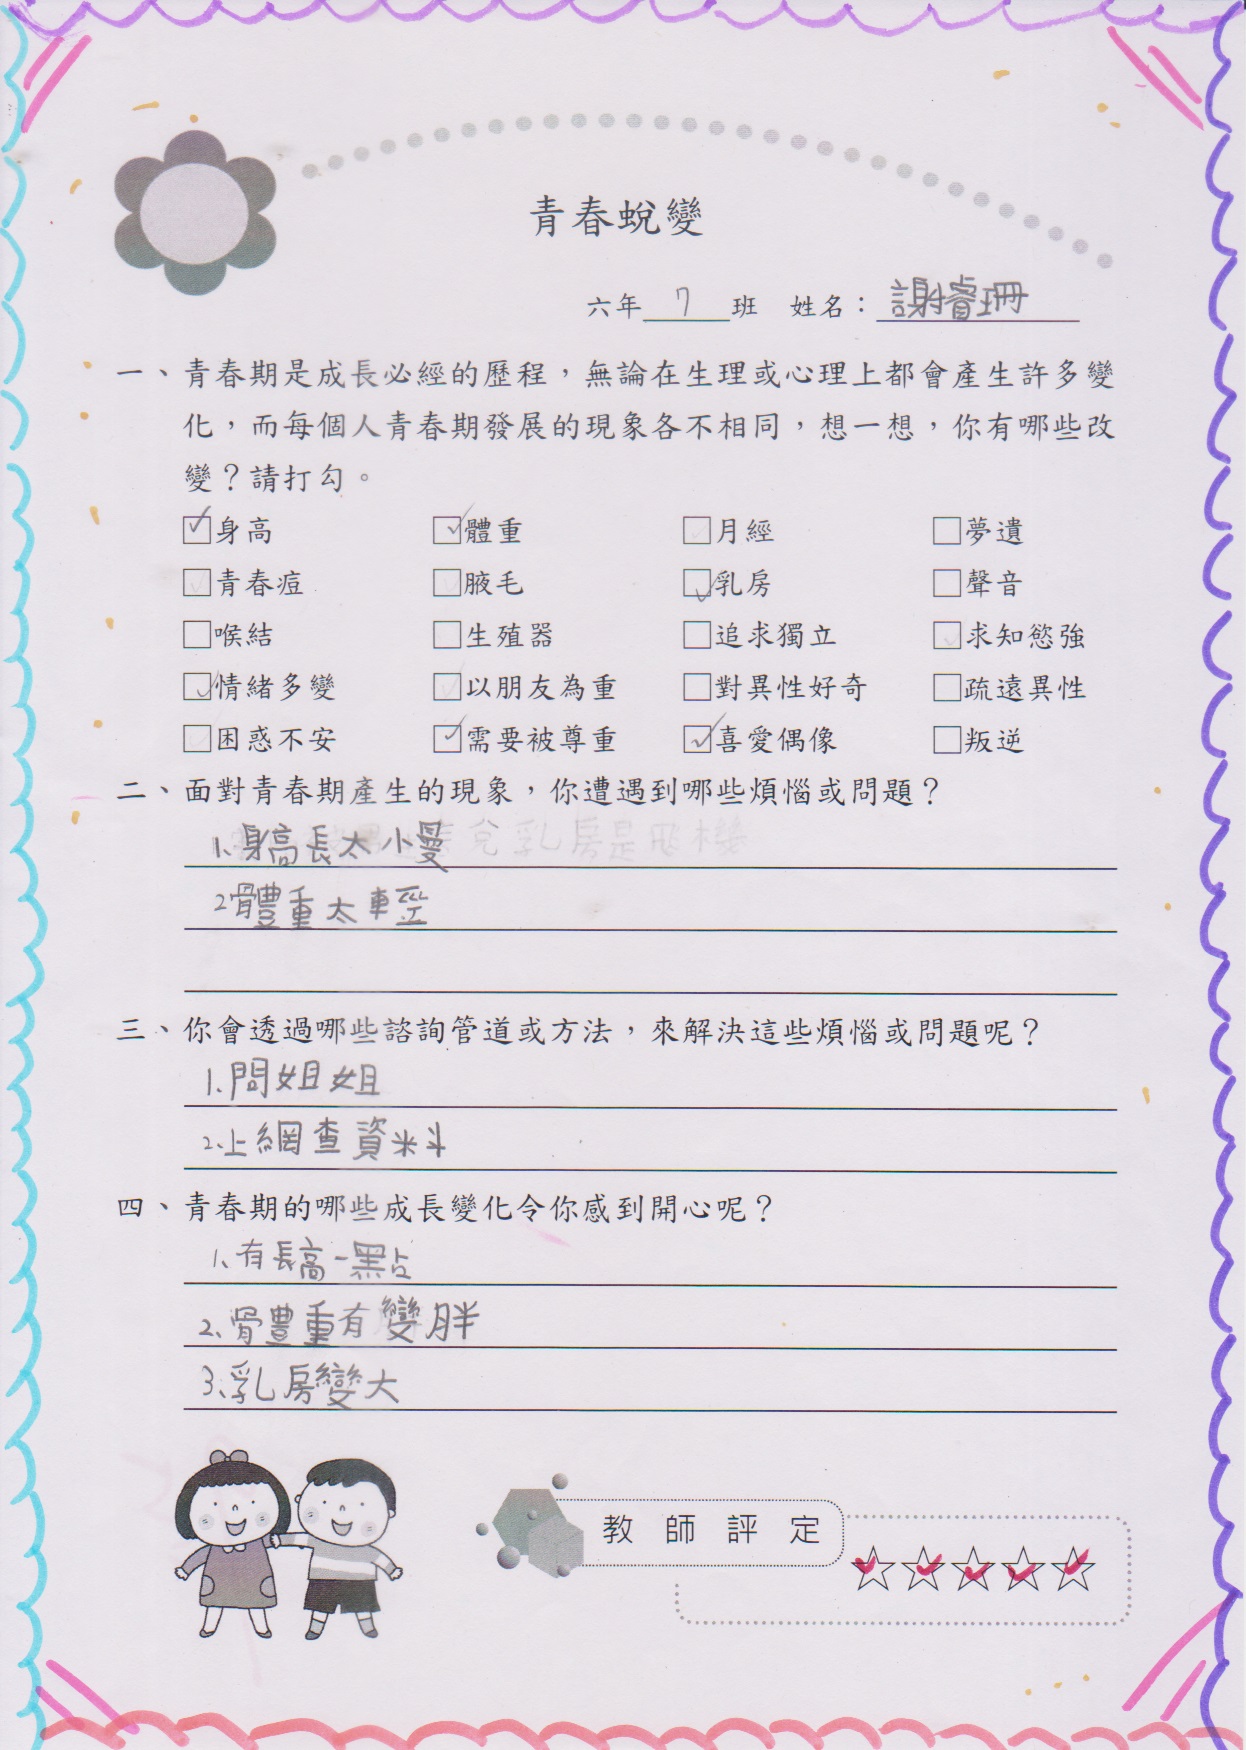 青春蛻變
六年 7 班 姓名：謝睿珊
一、青春期是成長必經的歷程，無論在生理或心理上都會產生許多變
化，而每個人青春期發展的現象各不相同，想一想，你有哪些改
變？請打勾。
☑身高 ☑體重 □月經 □夢遺
□青春痘 □腋毛 ☑乳房 □聲音
□喉結 □生殖器 □追求獨立 □求知慾強
☑情緒多變 □以朋友為重 □對異性好奇 □疏遠異性
□困惑不安 ☑需要被尊重 ☑喜愛偶像 □叛逆
二、面對青春期產生的現象，你遭遇到哪些煩惱或問題？
1.身高長太小曼
2體重太輕
三、你會透過哪些諮詢管道或方法，來解決這些煩惱或問題呢？
1.問姐姐
2.上網查資料
四、青春期的哪些成長變化令你感到開心呢？
1.有長高一點
2.體重有變胖
3.乳房變大
教師評定